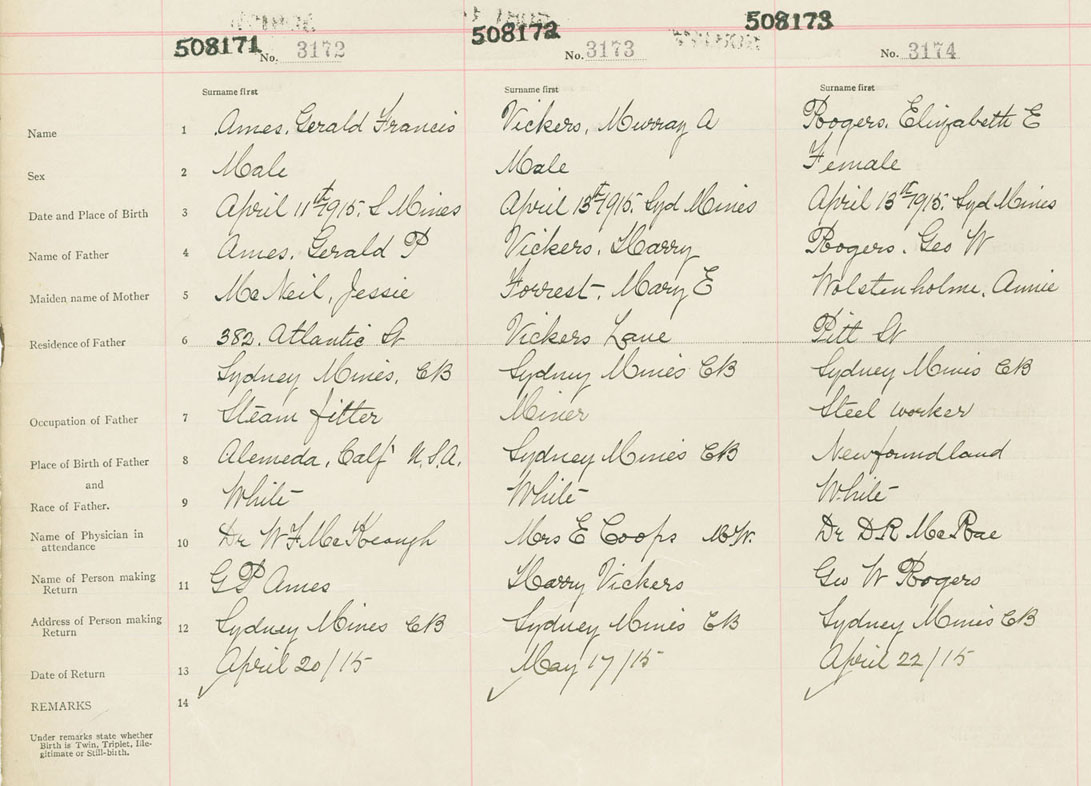 508171 508172 508173
No. 3172 No. 3173 No. 3174
Surname first Surname first Surname first
Name 1 Ames, Gerald Francis Vickers, Murray A Rogers, Elizabeth E
Sex 2 Male Male Female
Date and Place of Birth 3 April 11th 1915. S Mines April 13th 1915. Syd Mines April 13th 1915. Syd Mines
Name of Father 4 Ames, Gerald P Vickers, Harry Rogers, Geo W
Maiden name of Mother 5 McNeil, Jessie Forrest, Mary E Wolstenholme, Annie
Residence of Father 6 382. Atlantic St Vickers Lane Pitt St
Sydney Mines, CB Sydney Mines CB Sydney Mines CB
Occupation of Father 7 Steam fitter Miner Steel worker
Place of Birth of Father 8 Alemeda, Calf U.S.A. Sydney Mines CB Newfoundland
and
Race of Father. 9 White White White
Name of Physician in
attendance 10 Dr W F McKeough Mrs E Coops MW. Dr D R McRae
Name of Person making
Return 11 G P Ames Harry Vickers Geo W Rogers
Address of Person making
Return 12 Sydney Mines CB Sydney Mines CB Sydney Mines CB
Date of Return 13 April 20/15 May 17/15 April 22/15
REMARKS 14
Under remarks state whether
Birth is Twin, Triplet, Ille-
gitimate or Still-birth.